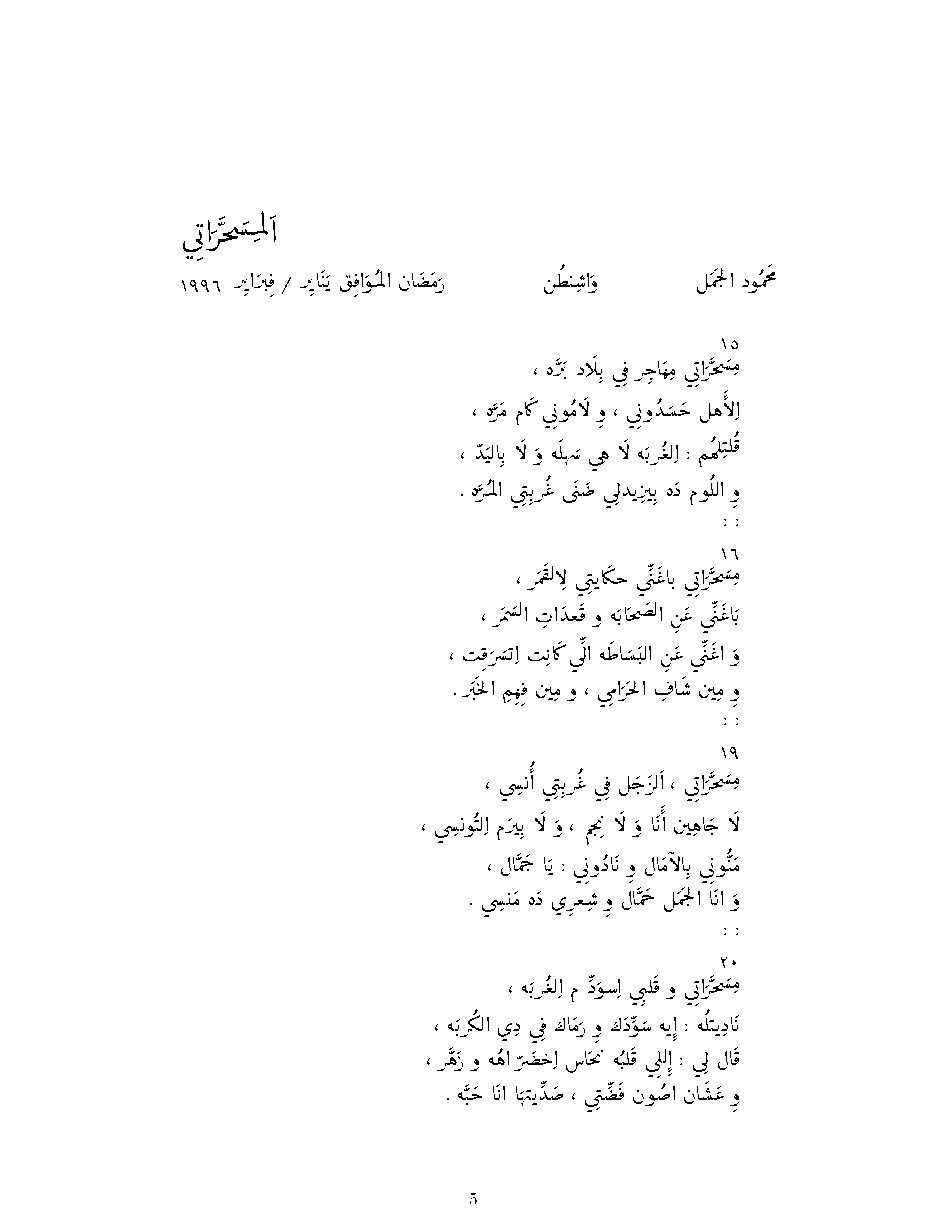 اَلمِسَحَّرَاتِي
مَحَمُود الجَمَل وَاشِنطُن رَمَضَان المُوَافِق يَنَايِر / فِبرَايِر ١٩٩٦
١٥
مِسَحَّرَاتِي مِهَاجِر فِي بِلَاد بَرَّه ،
اِلأَهل حَسَدُونِي ، وِ لَامُونِي كَام مَرَّه ،
قُلتِلُهُم : اِلغُربَه لَا هِي سَهلَه وَ لَا بِاليَدّ ،
وِ اللُوم دَه بِيزِيدلِي ضَنَى غُربِتِي المُرَّه .
: :
١٦
مِسَحَّرَاتِي باغَنِّي حكَايتِي لِالقَمَر ،
بَاغَنِّي عَنِ الصَحَابَه و قَعدَاتِ السَمَر ،
وَ اغَنِّي عَنِ البَسَاطَه الِّي كَانِت اِتسَرَقِت ،
وِ مِين شَافِ الحَرَامِي ، و مِين فِهِمِ الخَبَر .
: :
١٩
مِسَحَّرَاتِي ، اَلزَجَل فِي غُربِتِي أُنسِي ،
لَا جَاهِين أَنَا وَ لَا نِجم ، وَ لَا بِيرَم اِلتُونسِي ،
مَنُّونِي بِالآمَال و نَادُونِي : يَا جَمَّال ،
وَ انَا الجَمَل حَمَّال وِ شِعرِي دَه مَنسِي .
: :
٢٠
مِسَحَّرَاتِي و قَلبِي اِسوَدِّ م اِلغُربَه ،
نَادِيتلُه : إِيه سَوِّدَك وِ رَمَاك فِي دِي الكُربَه ،
قَال لِي : إِللِي قَلبُه نحَاس اِخضَرّ اهُه و زَهَّر ،
وِ عَشَان اصُون فَضِّتِي ، صَدِّيتهَا انَا حَبَّه .
5